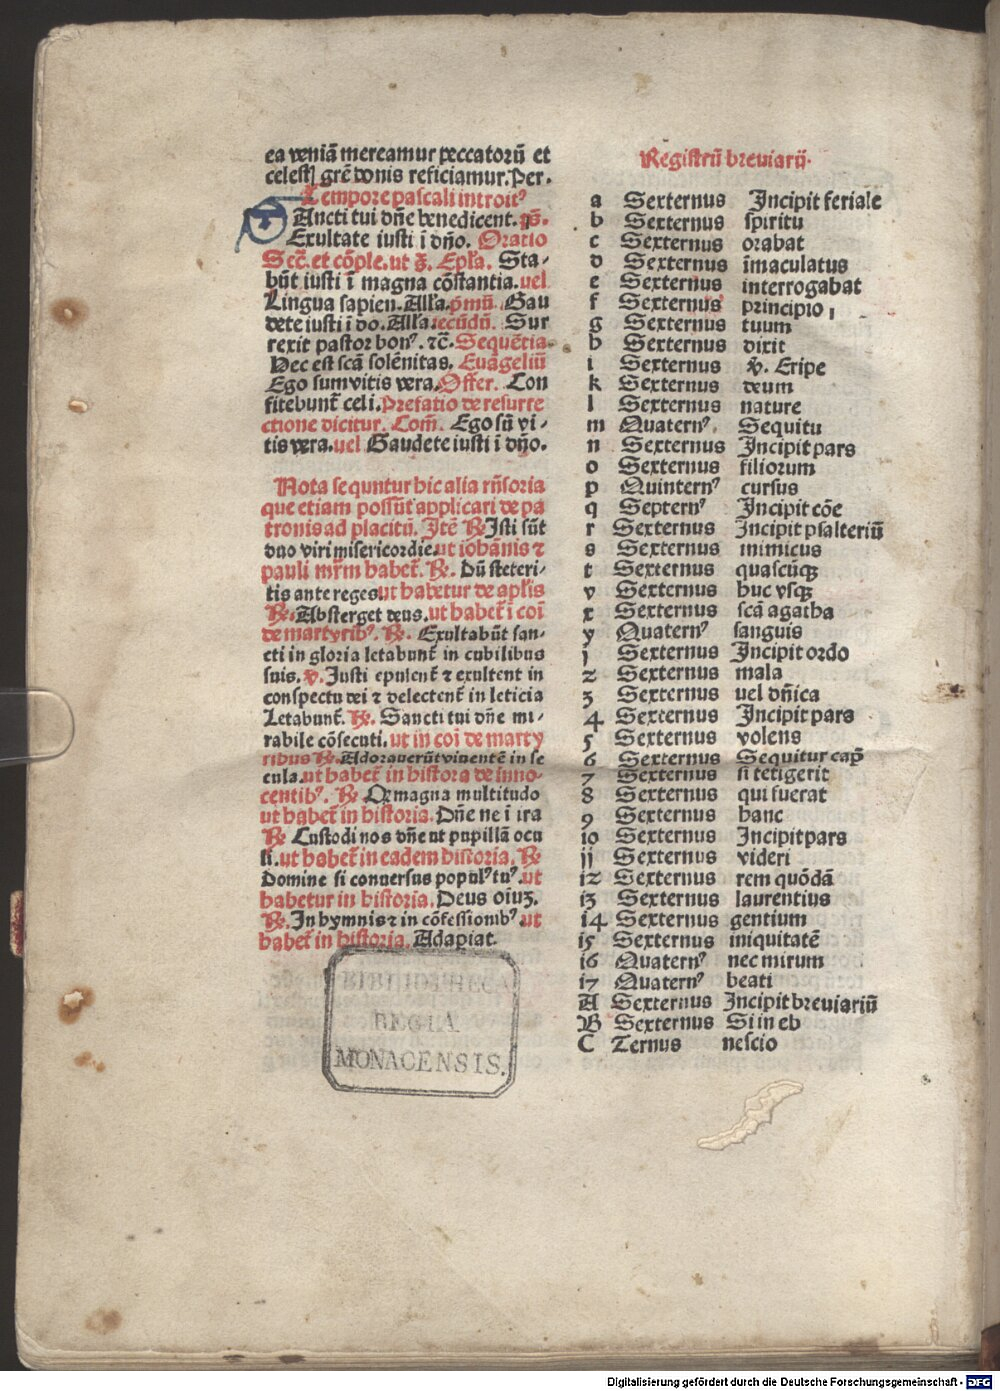 ea veniā mereamur peccatorū et
celestꝭ grē donis reficiamur. Per.
Tempore pascali introitꝰ
Sancti tui dn̄e benedicent. pš.
Exultate iusti ī dn̄o. Oratio
Scē. et cōple. ut š. Epl̄a. Sta⸗
būt iusti ī magna cōstantia. vel
Lingua sapien. All'a. pͥmū. Gau
dete iusti ī dō. All'a. secūdū. Sur
rexit pastor bonꝰ. ⁊c̄. Sequētia
Hec est scā solēnitas. Euāgeliū
Ego sum vitis vera. Offer. Con
fitebunt̄ celi. Prefatio de resurre
ctione dicitur. Com̄. Ego sū vi⸗
tis vera. vel Gaudete iusti ī dn̄o.
Nota sequntur hic alia rn̄soria
que etiam possūt applicari de pa
tronis ad placitū. Itē ℞ Isti sūt
duo viri misericordie. ut iohānis ⁊
pauli mr̄m habet̄. ℞. Dū steteri⸗
tis ante reges ut habetur de apl̄is
℞. Absterget deus. ut habet̄ ī coī
de martyribꝰ. ℞. Exultabūt san⸗
cti in gloria letabunt̄ in cubilibus
suis. ℣. Justi epulent̄ ⁊ exultent in
conspectu dei ⁊ delectent̄ in leticia
Letabunt̄. ℞. Sancti tui dn̄e mi⸗
rabile cōsecuti. ut in coī de marty
ribus ℞. Adorauerūt viuentē in se
cula. ut habet̄ in histora de inno⸗
centibꝰ. ℞ O magna multitudo
ut habet̄ in historia. Dn̄e ne ī ira
℞ Custodi nos dn̄e ut pupillā ocu
li. ut habet̄ in eadem historia. ℞
Domine si conuersus populꝰ tuꝰ. ut
habetur in historia. Deus oīuꝫ.
℞. In hymnis ⁊ in cōfessionibꝰ. ut
habet̄ in historia. Adapiat.
BIBLIOTHECA
REGIA
MONACENSIS.
Registrū breuiarij.
a Sexternus Incipit feriale
b Sexternus spiritu
c Sexternus orabat
d Sexternus īmaculatus
e Sexternus interrogabat
f Sexternus principio
g Sexternus tuum
h Sexternus dixit
i Sexternus ℣. Eripe
k Sexternus deum
l Sexternus nature
m Quaternꝰ Sequitu
n Sexternus Incipit pars
o Sexternus filiorum
p Quinternꝰ cursus
q Septernꝰ Incipit cōe
r Sexternus Incipit psalteriū
s Sexternus inimicus
t Sexternus quascūqꝫ
v Sexternus huc vsqꝫ
x Sexternus scā agatha
y Quaternꝰ sanguis
j Sexternus Incipit ordo
2 Sexternus mala
3 Sexternus vel dn̄ica
4 Sexternus Incipit pars
5 Sexternus volens
6 Sexternus Sequitur cap̄
7 Sexternus si tetigerit
8 Sexternus qui fuerat
9 Sexternus hanc
io Sexternus Incipit pars
ij Sexternus videri
i2 Sexternus rem quōdā
i3 Sexternus laurentius
i4 Sexternus gentium
i5 Sexternus iniquitatē
i6 Quaternꝰ nec mirum
i7 Quaternꝰ beati
A Sexternus Incipit breuiariū
B Sexternus Si in eb
C Ternus nescio
Digitalisierung gefördert durch die Deutsche Forschungsgemeinschaft - DFG